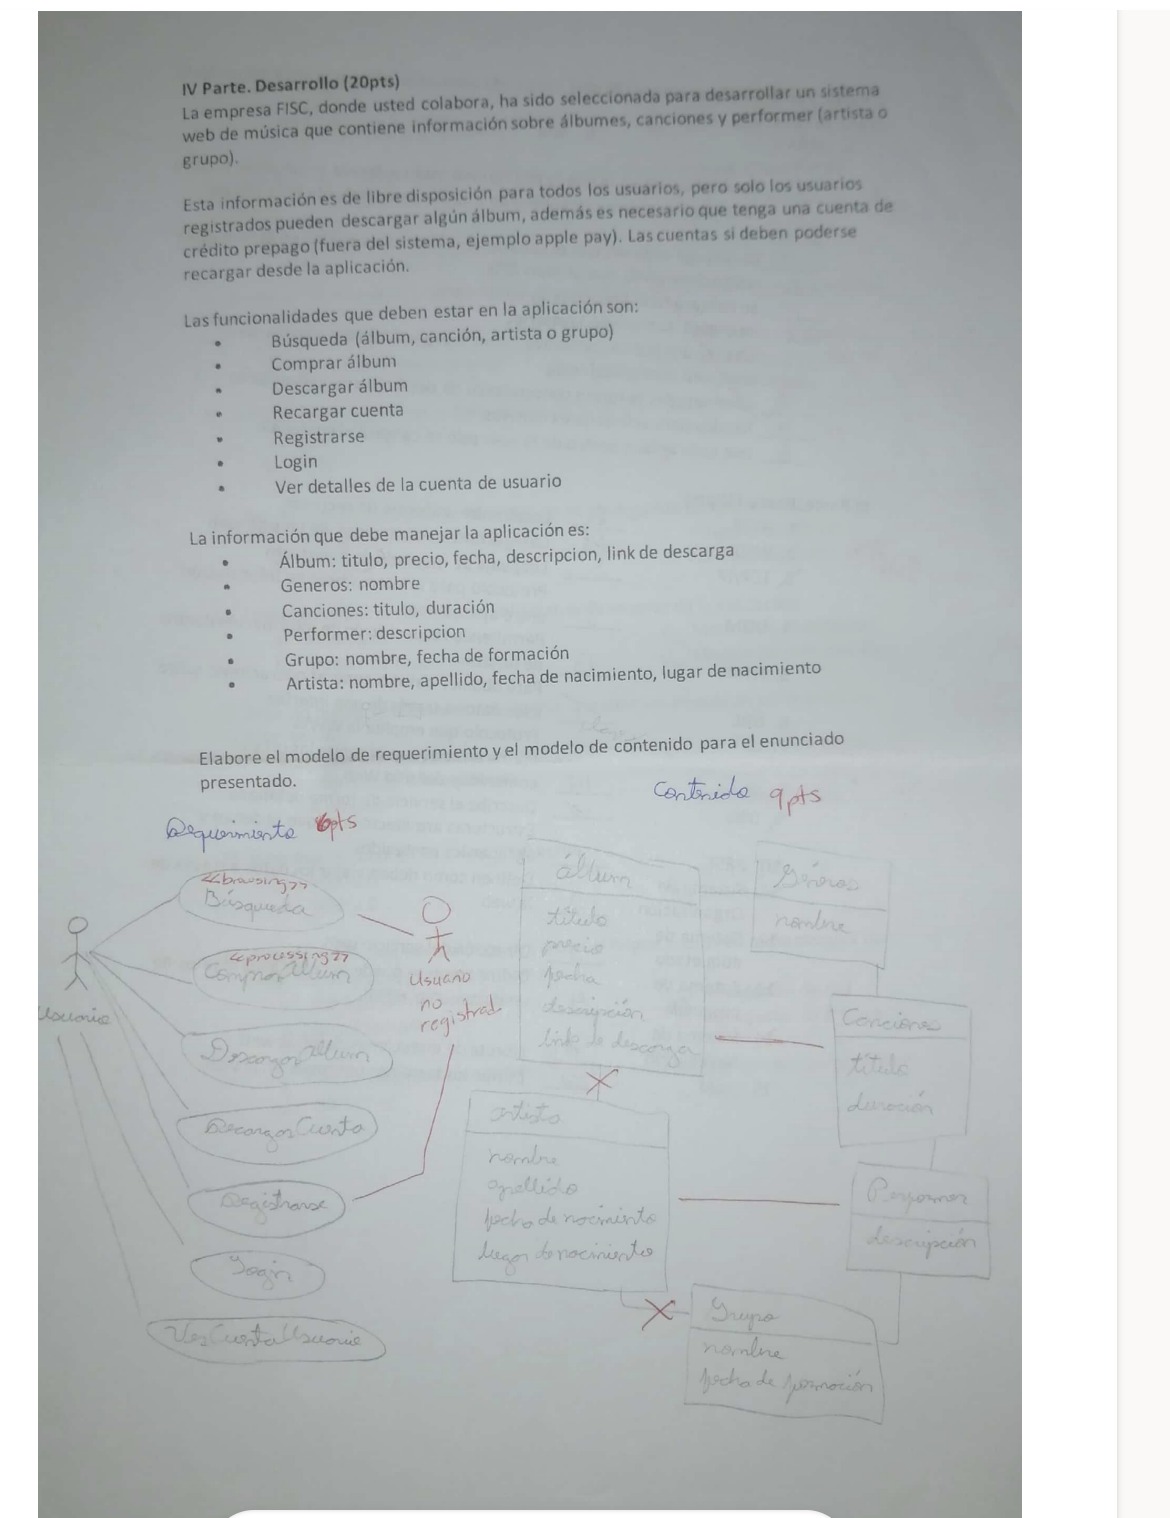 IV Parte. Desarrollo (20pts)
La empresa FISC, donde usted colabora, ha sido seleccionada para desarrollar un sistema
web de música que contiene información sobre álbumes, canciones y performer (artista o
grupo).
Esta información es de libre disposición para todos los usuarios, pero solo los usuarios
registrados pueden descargar algún álbum, además es necesario que tenga una cuenta de
crédito prepago (fuera del sistema, ejemplo apple pay). Las cuentas si deben poderse
recargar desde la aplicación.
Las funcionalidades que deben estar en la aplicación son:
• Búsqueda (álbum, canción, artista o grupo)
• Comprar álbum
• Descargar álbum
• Recargar cuenta
• Registrarse
• Login
• Ver detalles de la cuenta de usuario
La información que debe manejar la aplicación es:
• Álbum: titulo, precio, fecha, descripcion, link de descarga
• Generos: nombre
• Canciones: titulo, duración
• Performer: descripcion
• Grupo: nombre, fecha de formación
• Artista: nombre, apellido, fecha de nacimiento, lugar de nacimiento
Elabore el modelo de requerimiento y el modelo de contenido para el enunciado
presentado.
Requerimiento 6pts
Contenido 9pts
<<browsing>>
Búsqueda
<<processing>>
Comprar álbum
Descargar álbum
Recargar Cuenta
Registrarse
Login
Ver Cuenta Usuario
Usuario
Usuario
no
registrad
álbum
título
precio
fecha
descripción
link de descarga
Géneros
nombre
Canciones
título
duración
artista
nombre
apellido
fecha de nacimiento
lugar de nacimiento
Performer
descripción
Grupo
nombre
fecha de formación